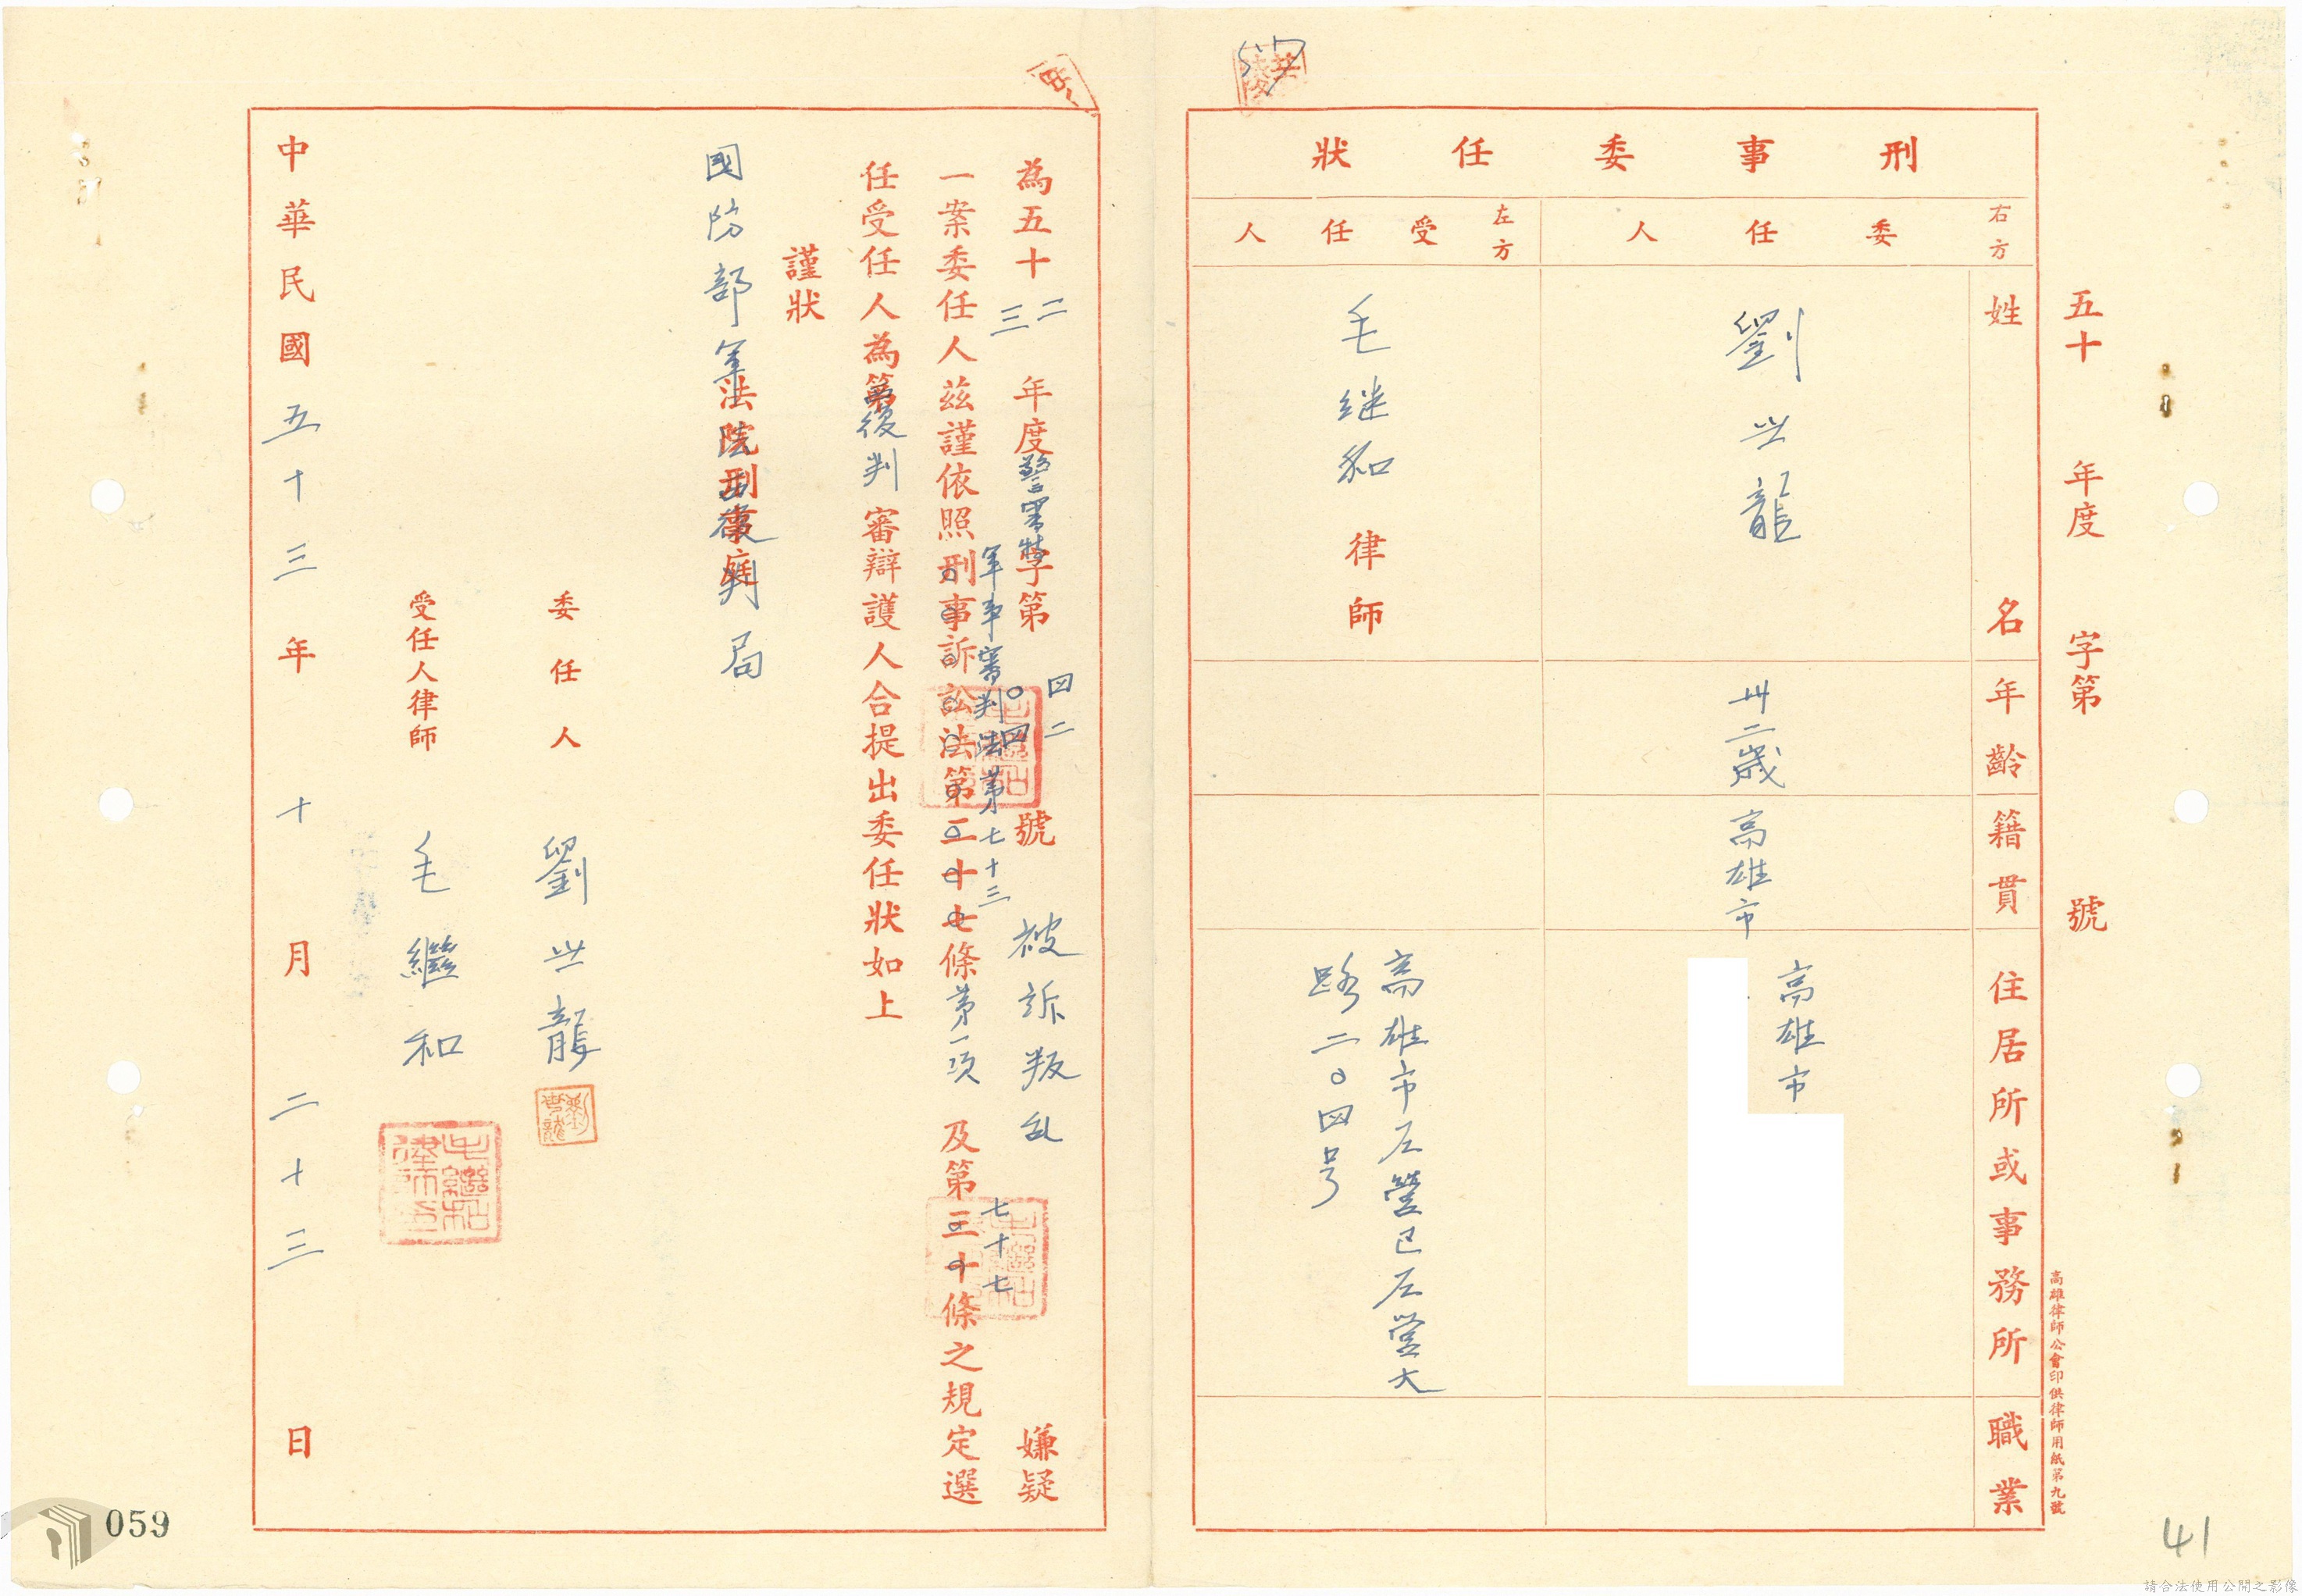 五十　年度　字第　號
高雄律師公會印供律師用紙第九號
刑事委任狀
右方 委任人
左方 受任人
姓名
年齡
籍貫
住居所或事務所
職業
劉世龍
卅二歲
高雄市
高雄市
毛継和 律師
高雄市左營己左營大
路二〇四号
為五十二 三年度警審特字第四二 〇四號被訴叛乱嫌疑
軍事審判法第七十三 七十七
一案委任人茲謹依照刑事訴訟法第二十七條第一項及第三十條之規定選
任受任人為第復判審辯護人合提出委任狀如上
謹狀
國防部軍法院刑事庭
覆判局
委任人 劉世龍
劉世龍
受任人律師 毛繼和
毛繼和律師
中華民國五十三年十月二十三日
059
41
請合法使用公開之影像